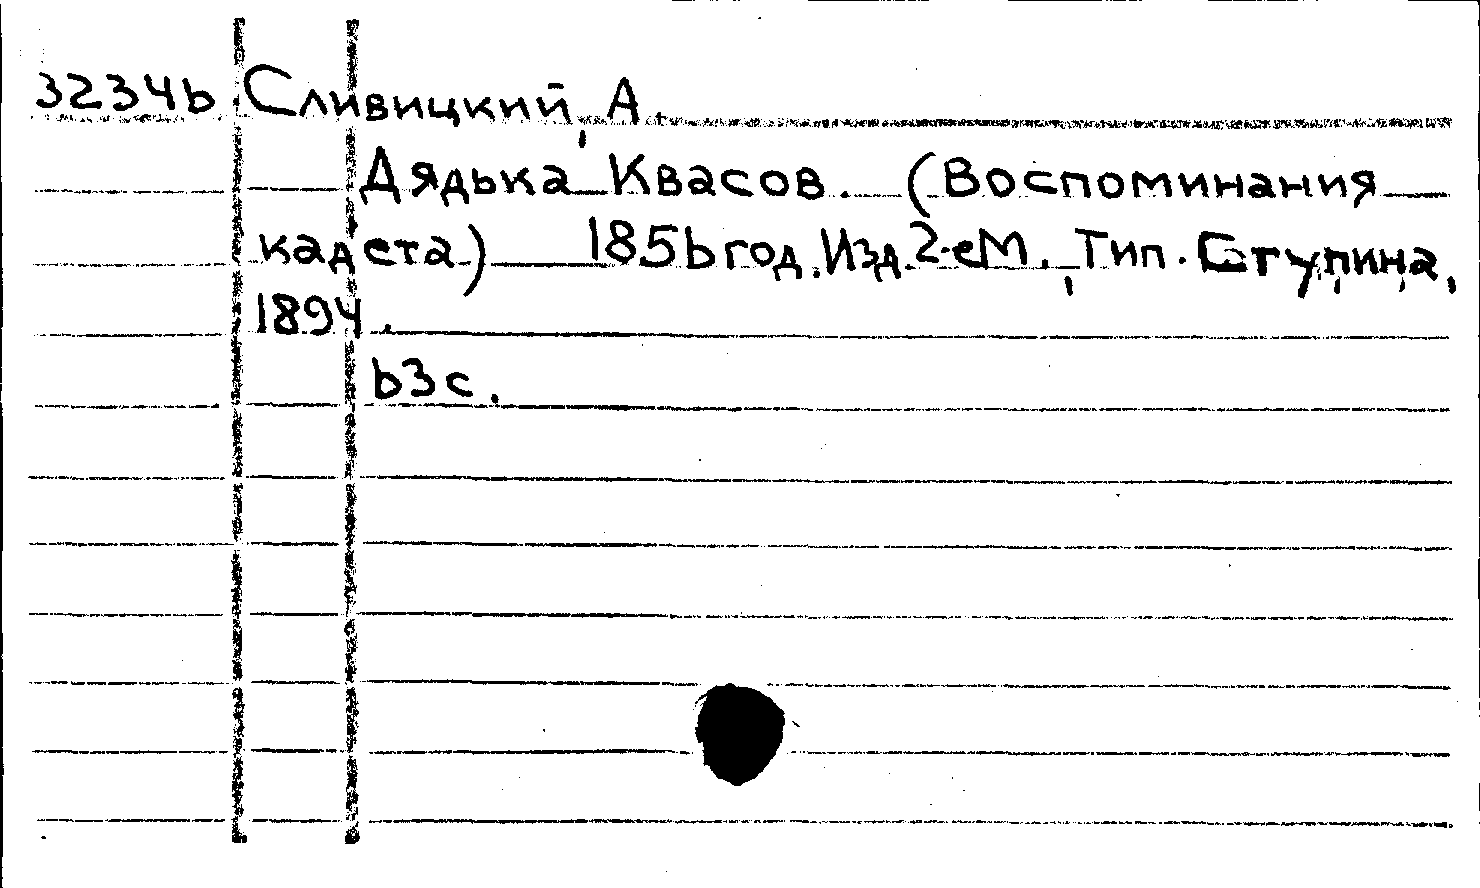 32346 Сливицкий, А.
Дядька Квасов. (Воспоминания
кадета) 1856 год. Изд. 2-е М., Тип. Ступина,
1894.
63 с.